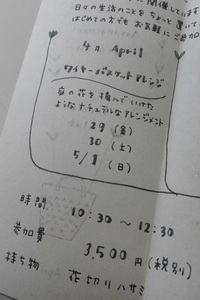 開催しています
日々の生活のことをちょっと置いて
はじめての方でもお気軽にご参加
4月 April
ワイヤーバスケットアレンジ
庭の花を摘んでいけた
ようなナチュラルなアレンジメント
29 (金)
30 (土)
5/1 (日)
時間 10:30 〜 12:30
参加費 3,500円(税別)
持ち物 花切りハサミ